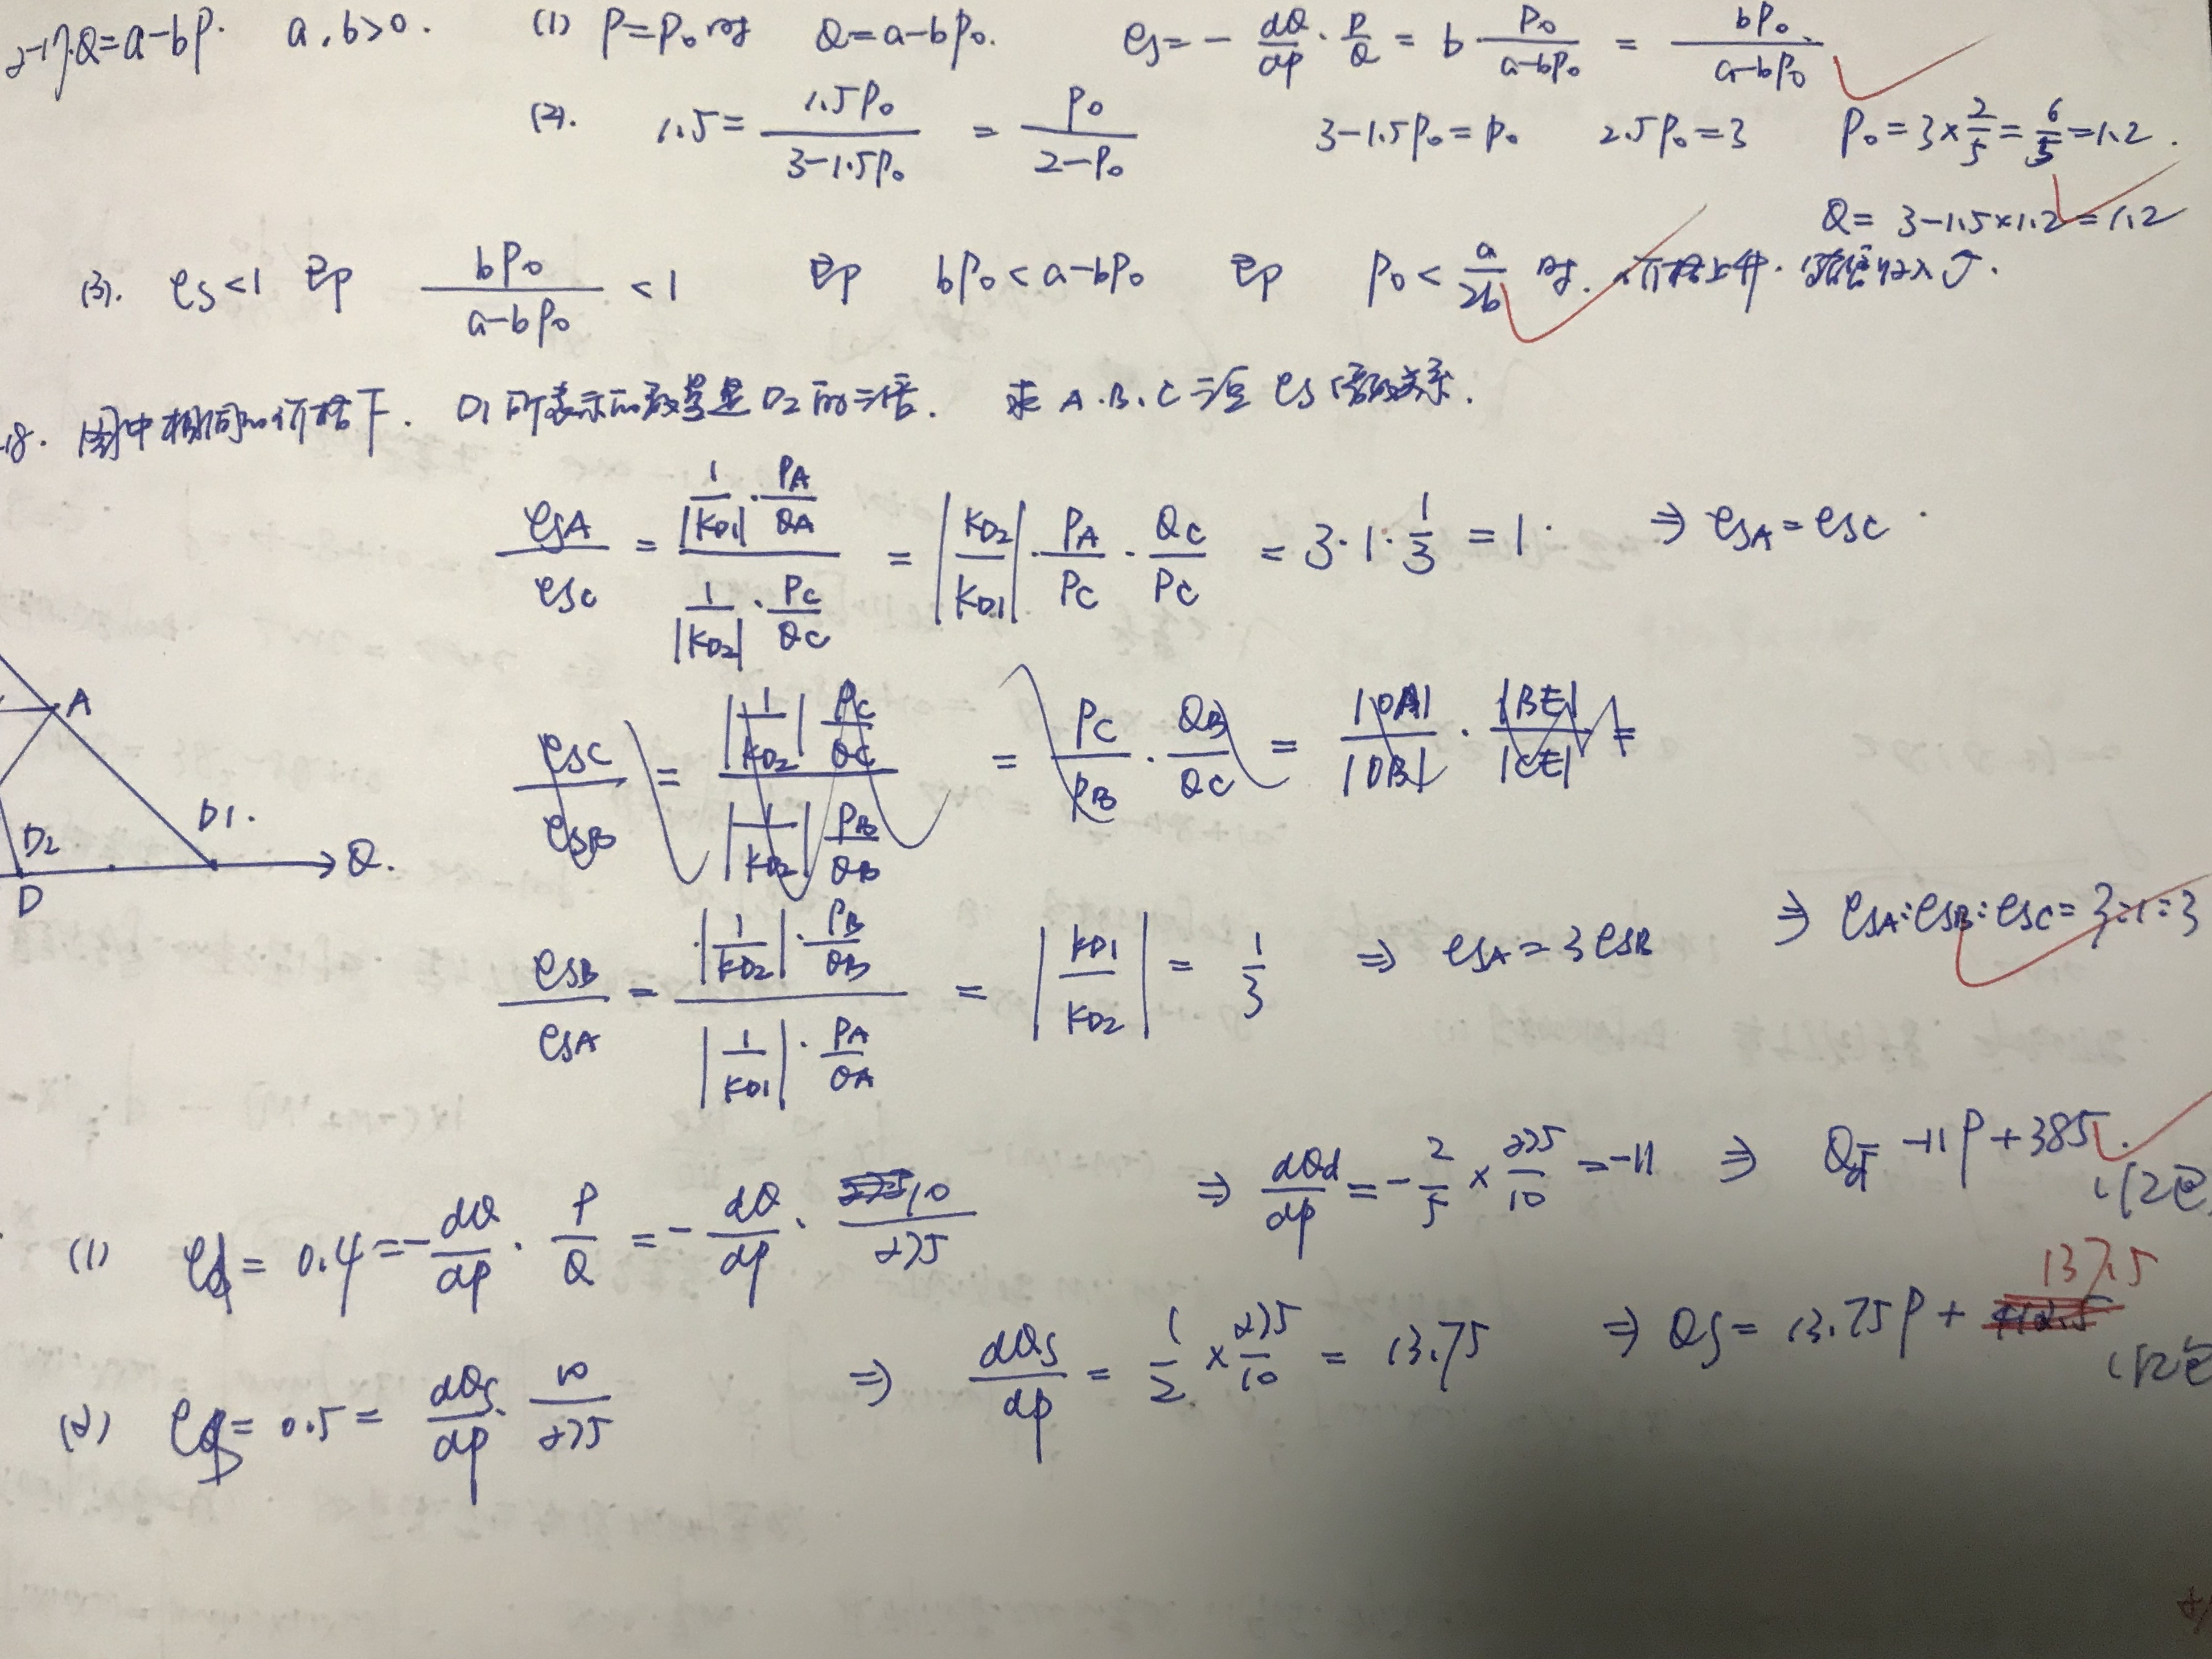 2-17. Q=a-bP. a,b>0. (1) P=P₀时 Q=a-bP₀. es=-dQ/dP·P/Q=b·P₀/(a-bP₀)=bP₀/(a-bP₀)
(2). 1.5=1.5P₀/(3-1.5P₀)=P₀/(2-P₀) 3-1.5P₀=P₀ 2.5P₀=3 P₀=3×2/5=6/5=1.2.
Q=3-1.5×1.2=1.2
(3). es<1 即 bP₀/(a-bP₀)<1 即 bP₀<a-bP₀ 即 P₀<a/2b 时. 价格上升. 收入↑.
18. 图中相同的价格下. D1所表示的数量是D2的三倍. 求A.B.C三点es值的关系.
esA/esC=(1/|KD1|·PA/QA)/(1/|KD2|·PC/QC)=|KD2/KD1|·PA/PC·QC/PC=3·1·1/3=1. ⇒ esA=esC.
A
esC/esB=(|1/KD2|PC/QC)/(|1/KD2|PB/QB)=PC/PB·QB/QC=|OA|/|OB|·|BE|/|CE|=
D1.
D2
Q.
D
esB/esA=(|1/KD2|·PB/QB)/(|1/KD1|·PA/QA)=|KD1/KD2|=1/3 ⇒ esA=3esB ⇒ esA:esB:esC=3:1:3
(1) ed=0.4=-dQ/dP·P/Q=-dQ/dP·10/275 ⇒ dQd/dP=-2/5×275/10=-11 ⇒ Qd=-11P+385.
137.5
(2) es=0.5=dQs/dP·10/275 ⇒ dQs/dP=1/2×275/10=13.75 ⇒ Qs=13.75P+